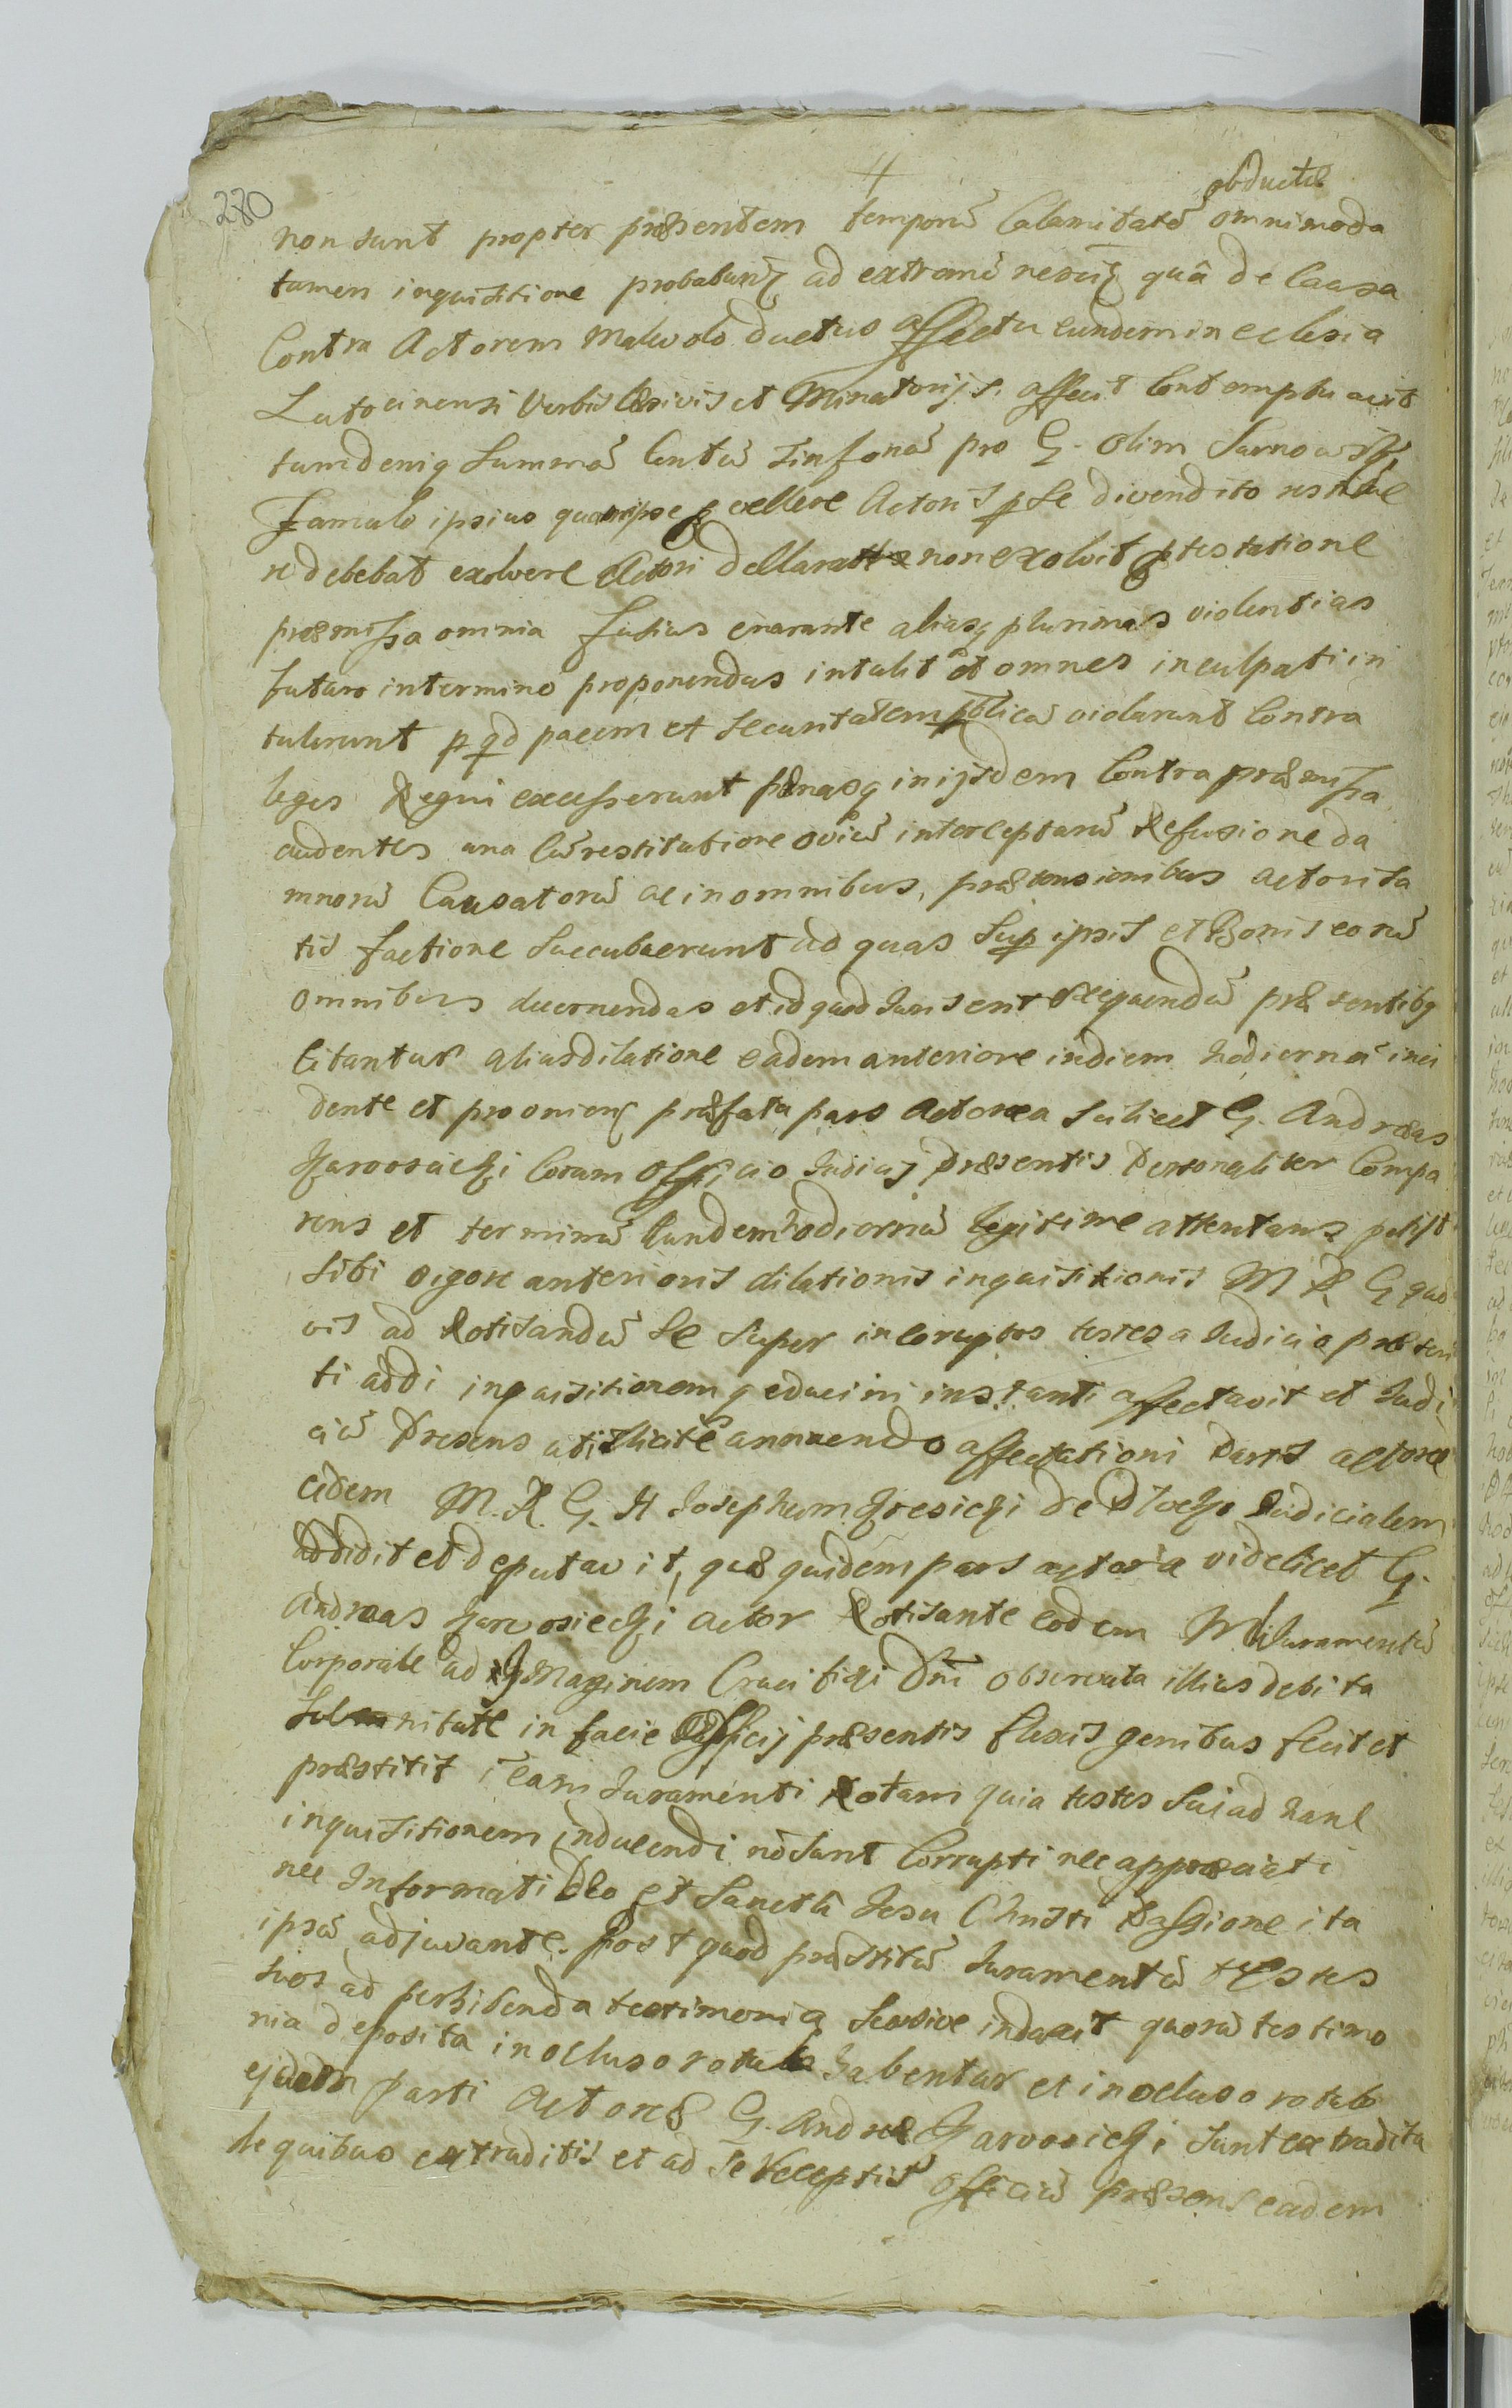 280
obductæ
non sunt propter præsentem temporũ Calamitatẽ omnimoda
tamen inquisitione probabunt ad extremũ quâ de Causa
Contra Actorem Malevolo ductus affectu eundem in eclesia
Lutocinensi Verbis læsivis et Minatorijs affecit Contemptu acit
tum deniq summã Centũ Tinfonũ pro G. olim Sarnowski
Famulo ipsius quam ipse vellere Actoris p se divendito
debebat exolvere Actori non exolvit ptestatione
præmissa omnia fusius enarante aliasq plurimas violentias
futuro in termino proponendas intulit et omnes inculpati in
tulerunt p qd pacem et Securitatem pblicã violarunt Contra
leges Regni excesserunt pænasq in ijsdem Contra præmissa
audentes una Cũ restitutione oviũ interceptarũ Refusione da
mnorũ Causatorũ ac in omnibus, prætensionibus actorita
tis factione Succubuerunt ad quas Sup ipsis et Bonis eorũ
omnibus decernendas et id quod Juris erit exequendũ præsentibq
Citantur alias dilatione eadem anteriore in diem hodiernã inci
dente et præfata pars Actorea Scilicet G. Andreas
Jarvosicki Coram Officio Judicij Præsentis Personaliter Compa
rens et terminũ Eundem hodiernũ legitime attentans petijt
Sibi vigore anterioris dilationis inquisitionis M R G quã
vis ad Rotisandũ Se Super incoruptos testes a Judicio præsen
ti addi inquisitionemq educi in instanti affectavit et Judi
ciũ Presens uti licitæ annuendo affectationi Partis actoreæ
eidem M. R. G. H Josephum Judicialem
addidit et deputavit, quæ quidem pars actorea videlicet G.
Andreas Jarvosicki actor Rotisante eodem M Juramentũ
Corporale ad Imaginem Crucifixi Dnĩ observata illius debita
Solennitate in facie Officij præsentis flexis genibus fecit et
præstitit ĩ eam Juramenti Rotam quia testes Sui ad hanc
inquisitionem inducendi nõ Sunt Corrupti nec appræciati
nec Informati Deo et Sanctâ Jesu Christi Passione ita
ipsũ adjuvante. Post quod præstitũ Juramentũ testes
suos ad perhibenda testimonia induxit quorũ testimo
nia deposita in ocluso rotulo habentur et in ocluso rotulo
ejdem parti Actoreæ G. Andreæ Jarvosicki Sunt extradita
de quibus extraditis et ad Se receptis officiũ præsens eadem